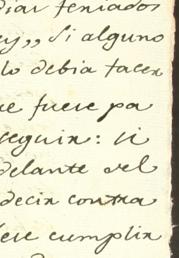 diar feniados
ey,, Si alguno
lo debia facer
ue fuere pa
seguir: si
delante del
decir contra
iere cumplir